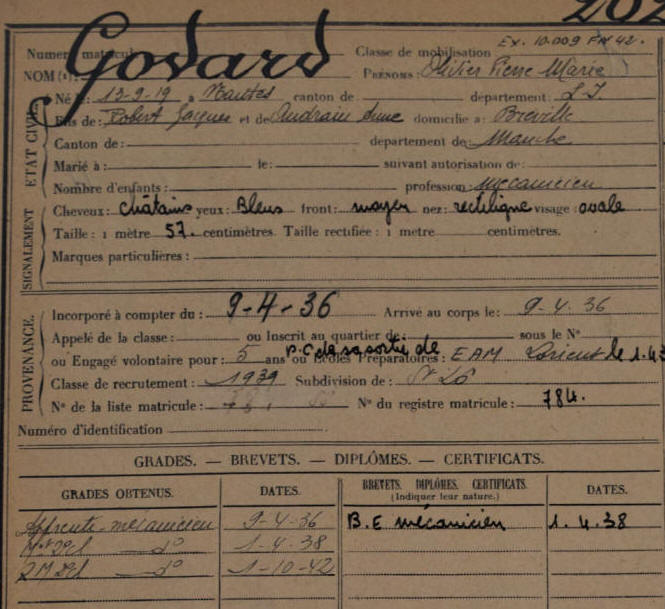 202
Numéro matricule Classe de mobilisation Ex. 10.009 FN 42.
Godard
NOM (1): PRÉNOMS: Olivier Pierre Marie
ETAT CIVIL.
Né le: 13-9-19 à Nantes canton de département: L-I
Fils de: Robert Jacques et de Audrain Anne domicilié à: Bréville
Canton de: département de: Manche
Marié à: le: suivant autorisation de:
Nombre d'enfants: profession: mécanicien
SIGNALEMENT
Cheveux: châtains yeux: Bleus front: moyen nez: rectiligne visage: ovale
Taille: 1 mètre 57. centimètres. Taille rectifiée: 1 mètre centimètres.
Marques particulières:
PROVENANCE.
Incorporé à compter du: 9-4-36 Arrivé au corps le: 9-4-36
Appelé de la classe: ou Inscrit au quartier de: sous le N°
ou Engagé volontaire pour: 5 ans ou Écoles Préparatoires: EAM Lorient le 1.4.3
p.C de sa sortie de
Classe de recrutement: 1939 Subdivision de: St Lô
N° de la liste matricule: N° du registre matricule: 784.
Numéro d'identification
GRADES. — BREVETS. — DIPLÔMES. — CERTIFICATS.
GRADES OBTENUS. DATES. BREVETS. DIPLÔMES. CERTIFICATS. DATES.
(Indiquer leur nature.)
Apprenti-mécanicien 9-4-36 B.E mécanicien 1.4.38
Mot 2cl d° 1-4-38
QM 2cl d° 1-10-42